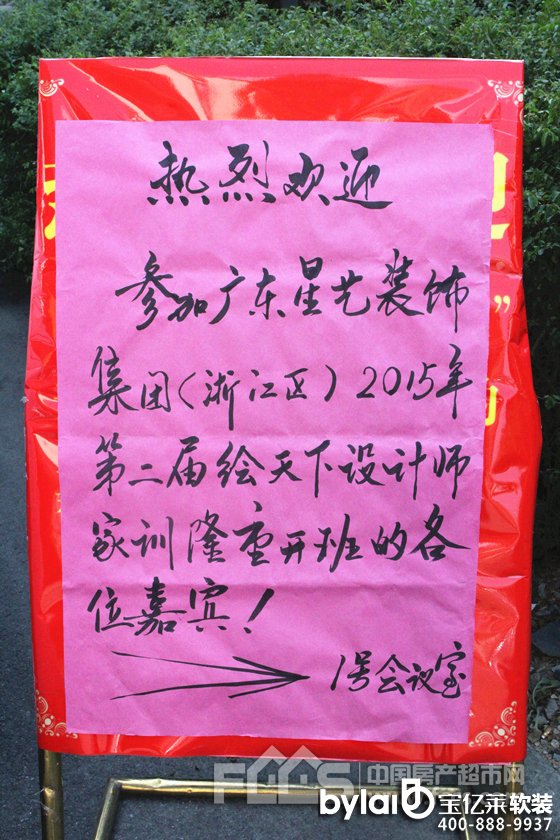 热烈欢迎
参加广东星艺装饰
集团(浙江区)2015年
第二届绘天下设计师
家训隆重开班的各
位嘉宾!
1号会议室
中国房产超市网
bylai 宝亿莱软装
400-888-9937